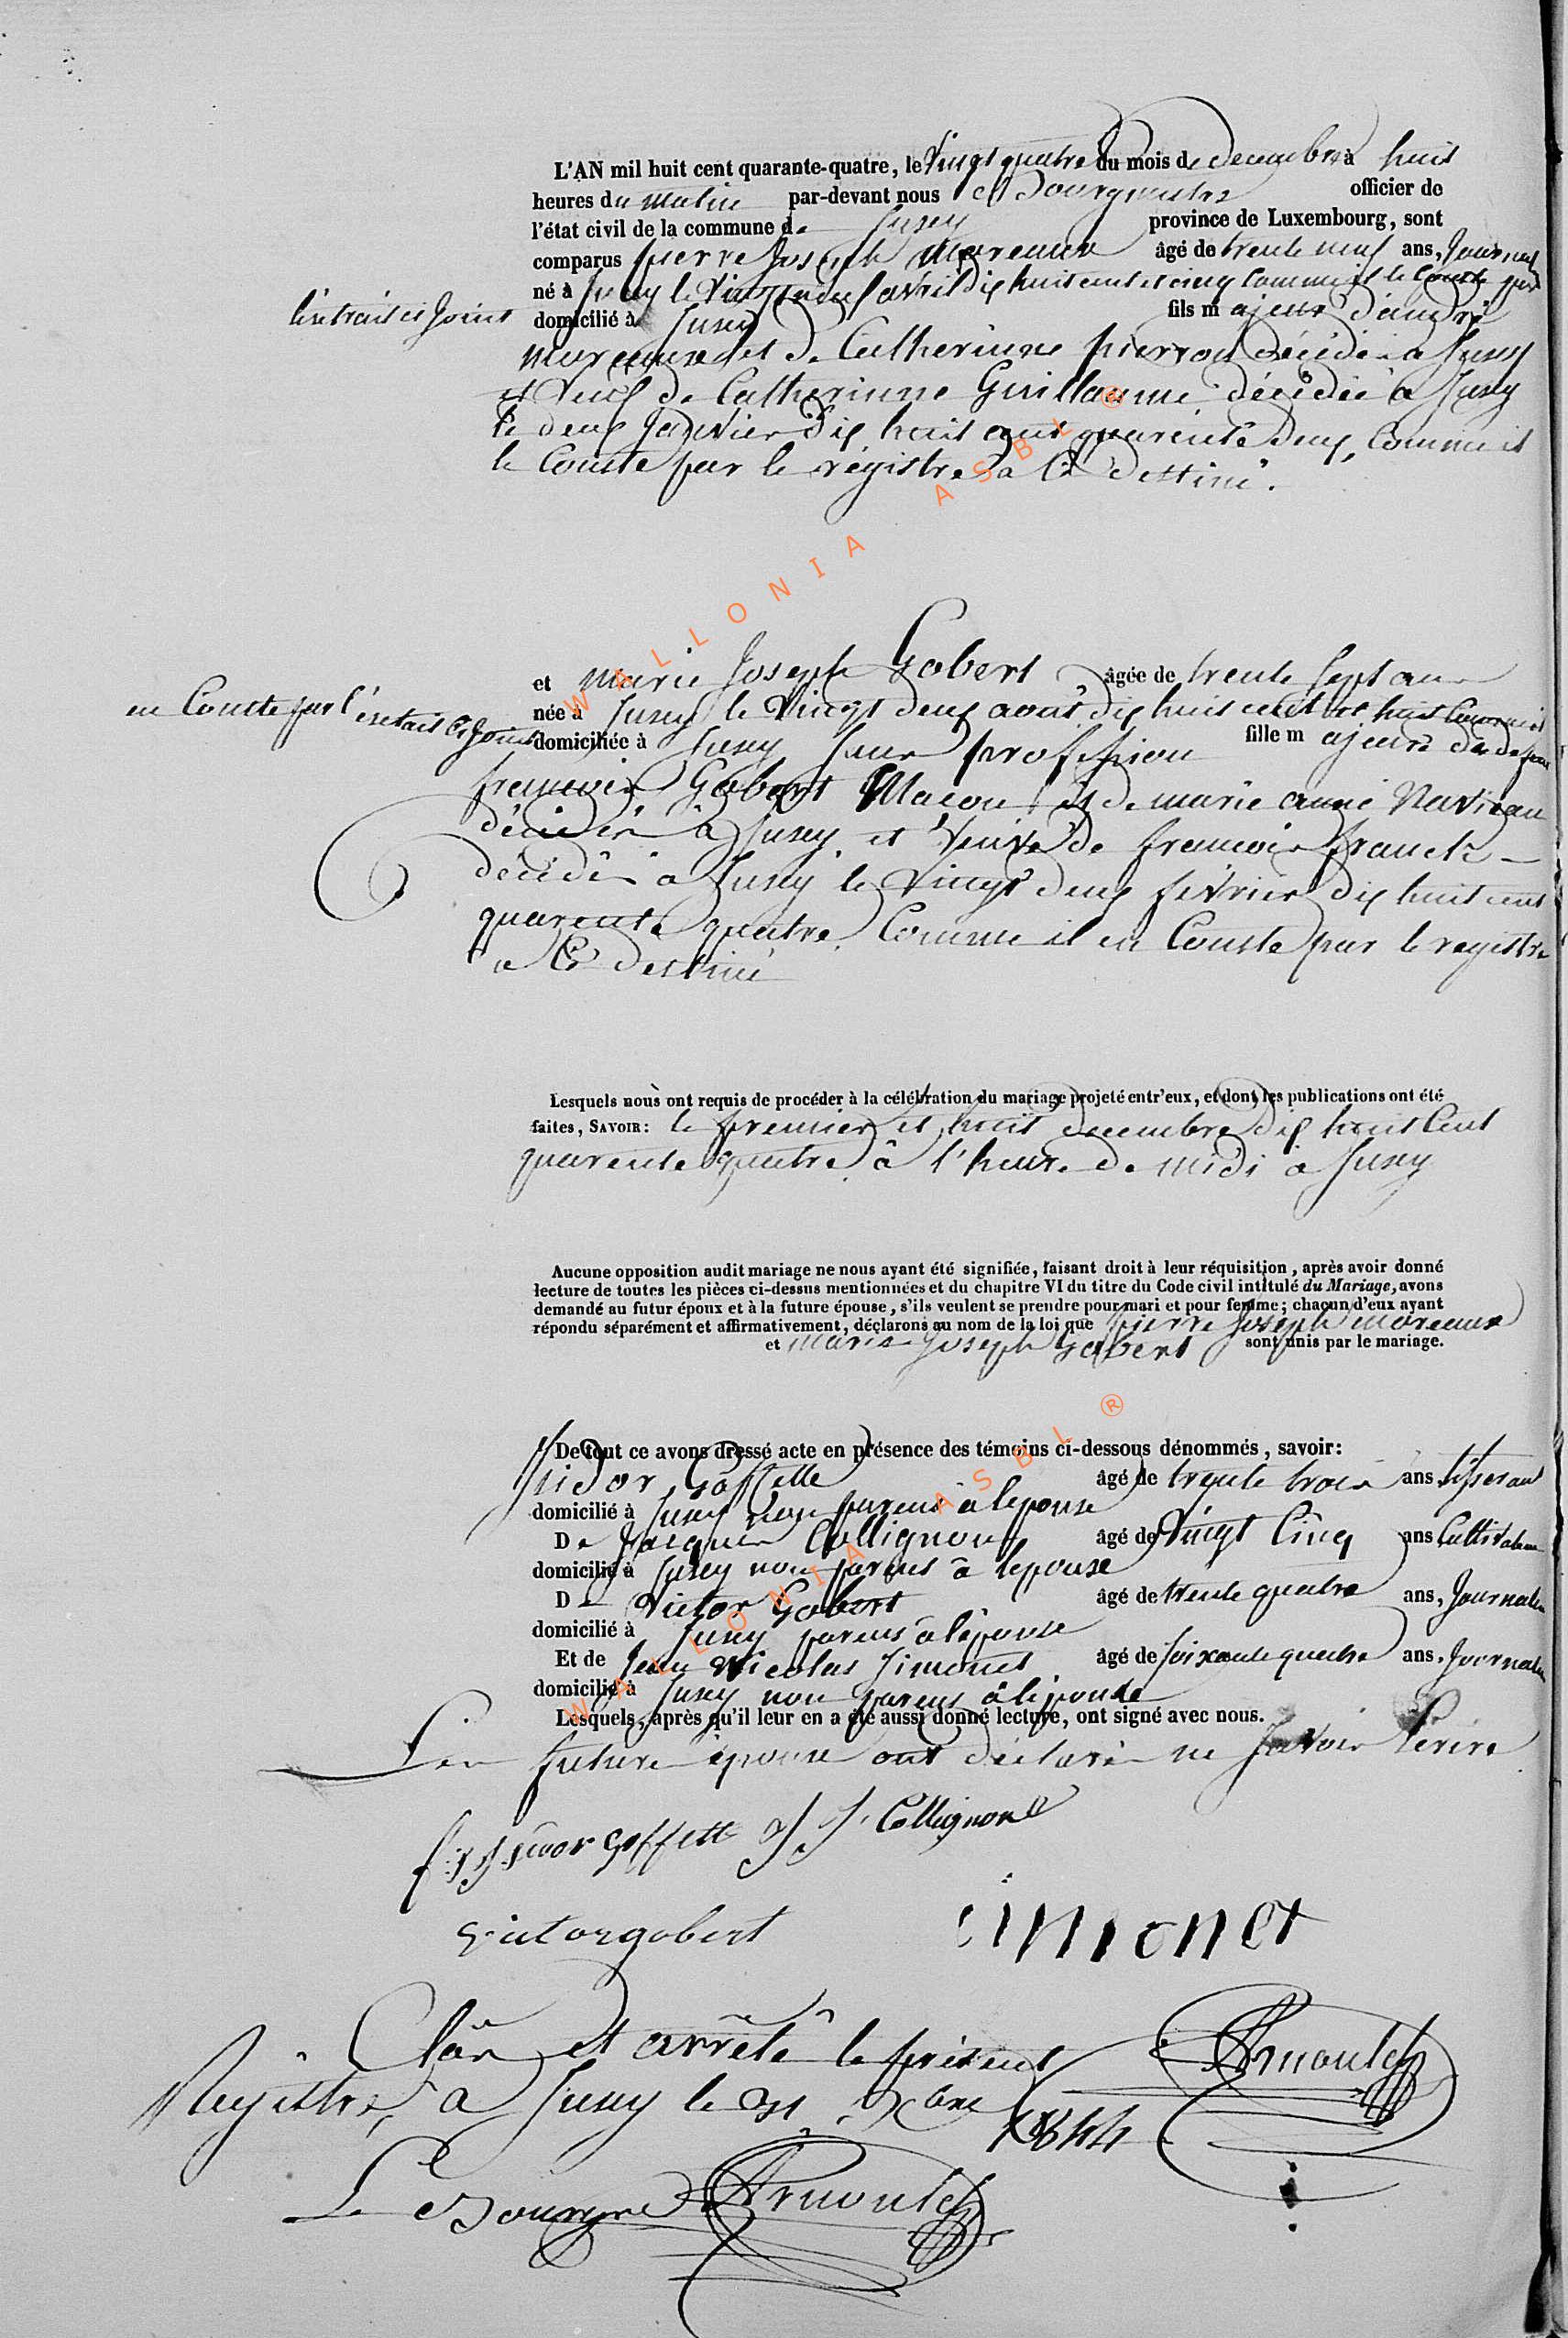 L'AN mil huit cent quarante-quatre, le Vingt quatre du mois de decembre à huit
heures du matin par-devant nous Bourgmestre officier de
l'état civil de la commune de Juzey province de Luxembourg, sont
comparus pierre Joseph Mareaux âgé de trente neuf ans, Journal
né à Jusey le Vingt neuf avril dix huit cent et cinq Comme il le Conste par
l'extrait ci Joint domicilié à Jusey fils majeur d'andré
Mareaux et de Catherinne pierrot décédé à Jusey
et Veuf de Catherinne Guillaume décédée a Jusey
le deux Janvier dix huit cent quarente deux, Comme il
le Conste par le régistre a Ce destiné.
et marie Joseph Gobert âgée de trente Sept ans
née à Jusey le Vingt deux août dix huit cent et huit Comme il
en Conste par l'extrait ci Joint domiciliée à Jusey Sans profession fille majeure de
francois Gobert Macon et de marie anne
décédés à Jusey et Veuve de francois franck
décédé à Jusey le Vingt deux février dix huit cent
quarente quatre Comme il en Conste par le registre
a Ce destiné
Lesquels nous ont requis de procéder à la célébration du mariage projeté entr'eux, et dont les publications ont été
faites, SAVOIR: le premier et huit decembre dix huit Cent
quarente quatre à l'heure de midi à Jusey
Aucune opposition audit mariage ne nous ayant été signifiée, faisant droit à leur réquisition, après avoir donné
lecture de toutes les pièces ci-dessus mentionnées et du chapitre VI du titre du Code civil intitulé du Mariage, avons
demandé au futur époux et à la future épouse, s'ils veulent se prendre pour mari et pour femme; chacun d'eux ayant
répondu séparément et affirmativement, déclarons au nom de la loi que pierre Joseph Moreaux
et marie Joseph Gobert sont unis par le mariage.
De tout ce avons dressé acte en présence des témoins ci-dessous dénommés, savoir:
Isidor Goffette âgé de trente trois ans tisseran
domicilié à Jusey non parens à lepouse
De Jacques Collignon âgé de Vingt Cinq ans Cultivateur
domicilié à Jusey non parens à lepouse
De Victor Gobert âgé de trente quatre ans, Journalier
domicilié à Jusey parens à lépouse
Et de Jean Nicolas Simonet âgé de Soixante quatre ans, Journalier
domicilié à Jusey non parens à lépouse
Lesquels, après qu'il leur en a été aussi donné lecture, ont signé avec nous.
Les future épouse ont déclaré ne Savoir écrire
Goffette J J. Collignon
victor gobert simonet
Clôs et arrêté le présent Arnould
Registre, a Jusey le 31 Xbre 1844
Le Bourgre Arnould
WALLONIA ASBL ®
WALLONIA ASBL ®